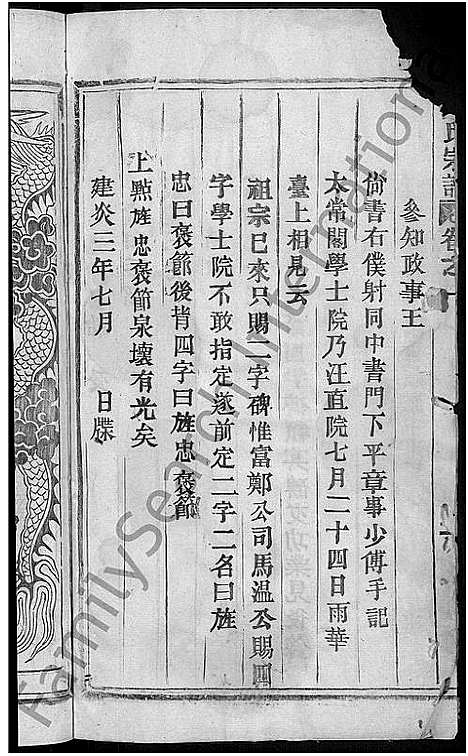 氏宗譜 卷之十
參知政事王
尙書右僕射同中書門下平章事少傅手記
太常閣學士院乃汪直院七月二十四日雨華
臺上相見云
祖宗已來只賜二字碑惟富鄭公司馬温公賜四
字學士院不敢指定遂前定二字二名曰旌
忠曰褒節後肯四字曰旌忠褒節
上㸃旌忠褒節泉壤有光矣
建炎三年七月 日牒
FamilySearch International